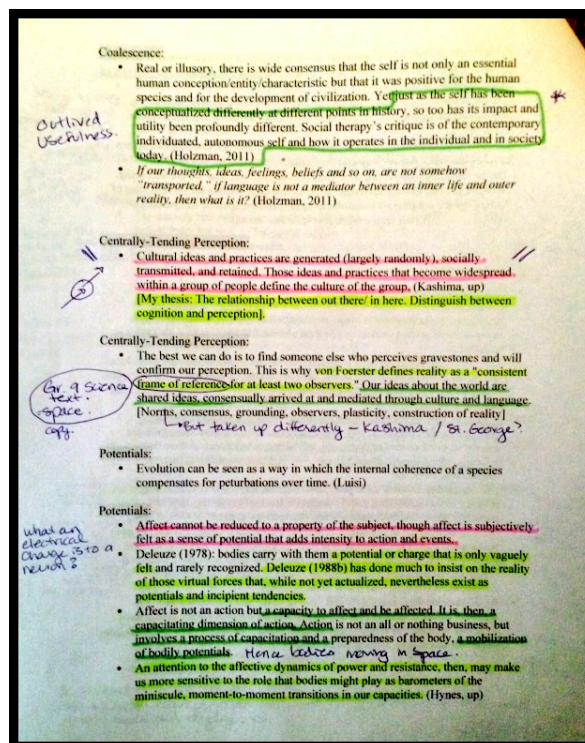 Coalescence:
• Real or illusory, there is wide consensus that the self is not only an essential
human conception/entity/characteristic but that it was positive for the human
species and for the development of civilization. Yet just as the self has been
conceptualized differently at different points in history, so too has its impact and
utility been profoundly different. Social therapy's critique is of the contemporary
individuated, autonomous self and how it operates in the individual and in society
today. (Holzman, 2011)
outlived
usefulness.
• If our thoughts, ideas, feelings, beliefs and so on, are not somehow
"transported," if language is not a mediator between an inner life and outer
reality, then what is it? (Holzman, 2011)
Centrally-Tending Perception:
• Cultural ideas and practices are generated (largely randomly), socially
transmitted, and retained. Those ideas and practices that become widespread
within a group of people define the culture of the group. (Kashima, up)
[My thesis: The relationship between out there/ in here. Distinguish between
cognition and perception].
Centrally-Tending Perception:
• The best we can do is to find someone else who perceives gravestones and will
confirm our perception. This is why von Foerster defines reality as a "consistent
frame of reference for at least two observers." Our ideas about the world are
shared ideas, consensually arrived at and mediated through culture and language.
[Norms, consensus, grounding, observers, plasticity, construction of reality]
Gr. 9 Science
text.
space.
copy.
But taken up differently - Kashima / St. George?
Potentials:
• Evolution can be seen as a way in which the internal coherence of a species
compensates for peturbations over time. (Luisi)
Potentials:
• Affect cannot be reduced to a property of the subject, though affect is subjectively
felt as a sense of potential that adds intensity to action and events.
what an
electrical
charge is to a
neuron?
• Deleuze (1978): bodies carry with them a potential or charge that is only vaguely
felt and rarely recognized. Deleuze (1988b) has done much to insist on the reality
of those virtual forces that, while not yet actualized, nevertheless exist as
potentials and incipient tendencies.
• Affect is not an action but a capacity to affect and be affected. It is, then, a
capacitating dimension of action. Action is not an all or nothing business, but
involves a process of capacitation and a preparedness of the body, a mobilization
of bodily potentials. Hence bodies moving in space.
• An attention to the affective dynamics of power and resistance, then, may make
us more sensitive to the role that bodies might play as barometers of the
miniscule, moment-to-moment transitions in our capacities. (Hynes, up)